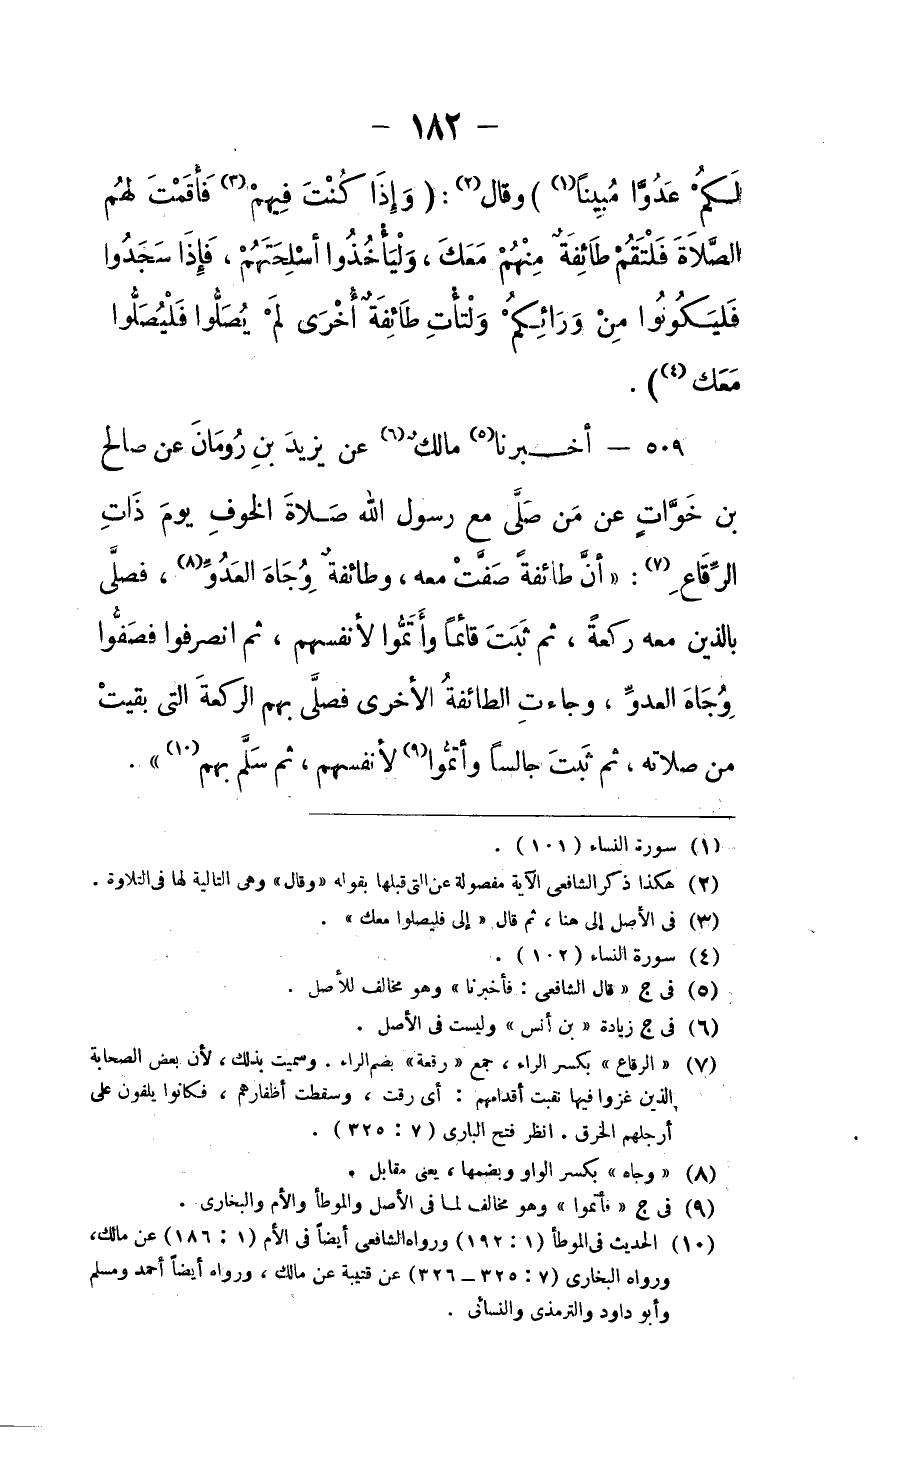 - ١٨٢ -
لَكُمْ عَدُوًّا مُبِيناً(١) ) وقال(٢) : ( وَإِذَا كُنْتَ فِيهِمْ(٣) فَأَقَمْتَ لَهُمُ
الصَّلَاةَ فَلْتَقُمْ طَائِفَةٌ مِنْهُمْ مَعَكَ ، وَلْيَأْخُذُوا أَسْلِحَتَهُمْ ، فَإِذَا سَجَدُوا
فَلْيَكُونُوا مِنْ وَرَائِكُمْ وَلْتَأْتِ طَائِفَةٌ أُخْرَى لَمْ يُصَلُّوا فَلْيُصَلُّوا
مَعَكَ(٤) ) .
٥٠٩ — أخبرنا(٥) مالكٌ(٦) عن يزيدَ بنِ رُومَانَ عن صالح
بن خَوَّاتٍ عن مَن صَلَّى مع رسول الله صَلاةَ الخوفِ يومَ ذَاتِ
الرِّقَاعِ(٧) : « أنَّ طائفةً صَفَّتْ معه ، وطائفةٌ وُِجَاهَ العَدُوِّ(٨) ، فصلَّى
بالذين معه ركعةً ، ثم ثَبَتَ قائماً وأَتَمُّوا لأنفسهم ، ثم انصرفوا فصَفُّوا
وُِجَاهَ العدوِّ ، وجاءتِ الطائفةُ الأخرى فصلَّى بهم الركعةَ التى بقيتْ
من صلاته ، ثم ثَبَتَ جالساً وأتمُّوا(٩) لأنفسهم ، ثم سَلَّم بهم(١٠) » .
(١) سورة النساء (١٠١) .
(٢) هكذا ذكر الشافعى الآية مفصولة عن التى قبلها بقوله «وقال» وهى التالية لها فى التلاوة .
(٣) فى الأصل إلى هنا ، ثم قال « إلى فليصلوا معك » .
(٤) سورة النساء (١٠٢) .
(٥) فى ج « قال الشافعى : فأخبرنا » وهو مخالف للأصل .
(٦) فى ج زيادة « بن أنس » وليست فى الأصل .
(٧) « الرقاع » بكسر الراء ، جمع « رقعة» بضم الراء . وسميت بذلك ، لأن بعض الصحابة
الذين غزوا فيها نقبت أقدامهم : أى رقت ، وسقطت أظفارهم ، فكانوا يلفون على
أرجلهم الخرق . انظر فتح البارى (٧ : ٣٢٥) .
(٨) « وجاه » بكسر الواو وبضمها ، يعنى مقابل .
(٩) فى ج « فأتموا » وهو مخالف لما فى الأصل والموطأ والأم والبخارى .
(١٠) الحديث فى الموطأ (١ : ١٩٢) ورواه الشافعى أيضاً فى الأم (١ : ١٨٦) عن مالك،
ورواه البخارى (٧ : ٣٢٥ – ٣٢٦) عن قتيبة عن مالك ، ورواه أيضاً أحمد ومسلم
وأبو داود والترمذى والنسائى .